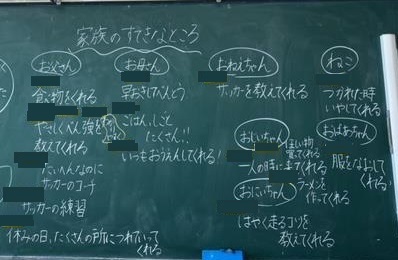 家族のすてきなところ
お父さん
食べ物をくれる
やさしくべん強を
教えてくれる
たいへんなのに
サッカーのコーチ
サッカーの練習
休みの日、たくさんの所につれていって
くれる
お母さん
早おきしてべんとう
ごはん、しごと
たくさん!!
いつもおうえんしてくれる!
おねえちゃん
サッカーを教えてくれる
おじいちゃん
ほしい物
買ってくれる
一人の時に来てくれる
おにいちゃん
ラーメンを
作ってくれる
はやく走るコツを
教えてくれる
ねこ
つかれた時
いやしてくれる
おばあちゃん
服をなおして
くれる